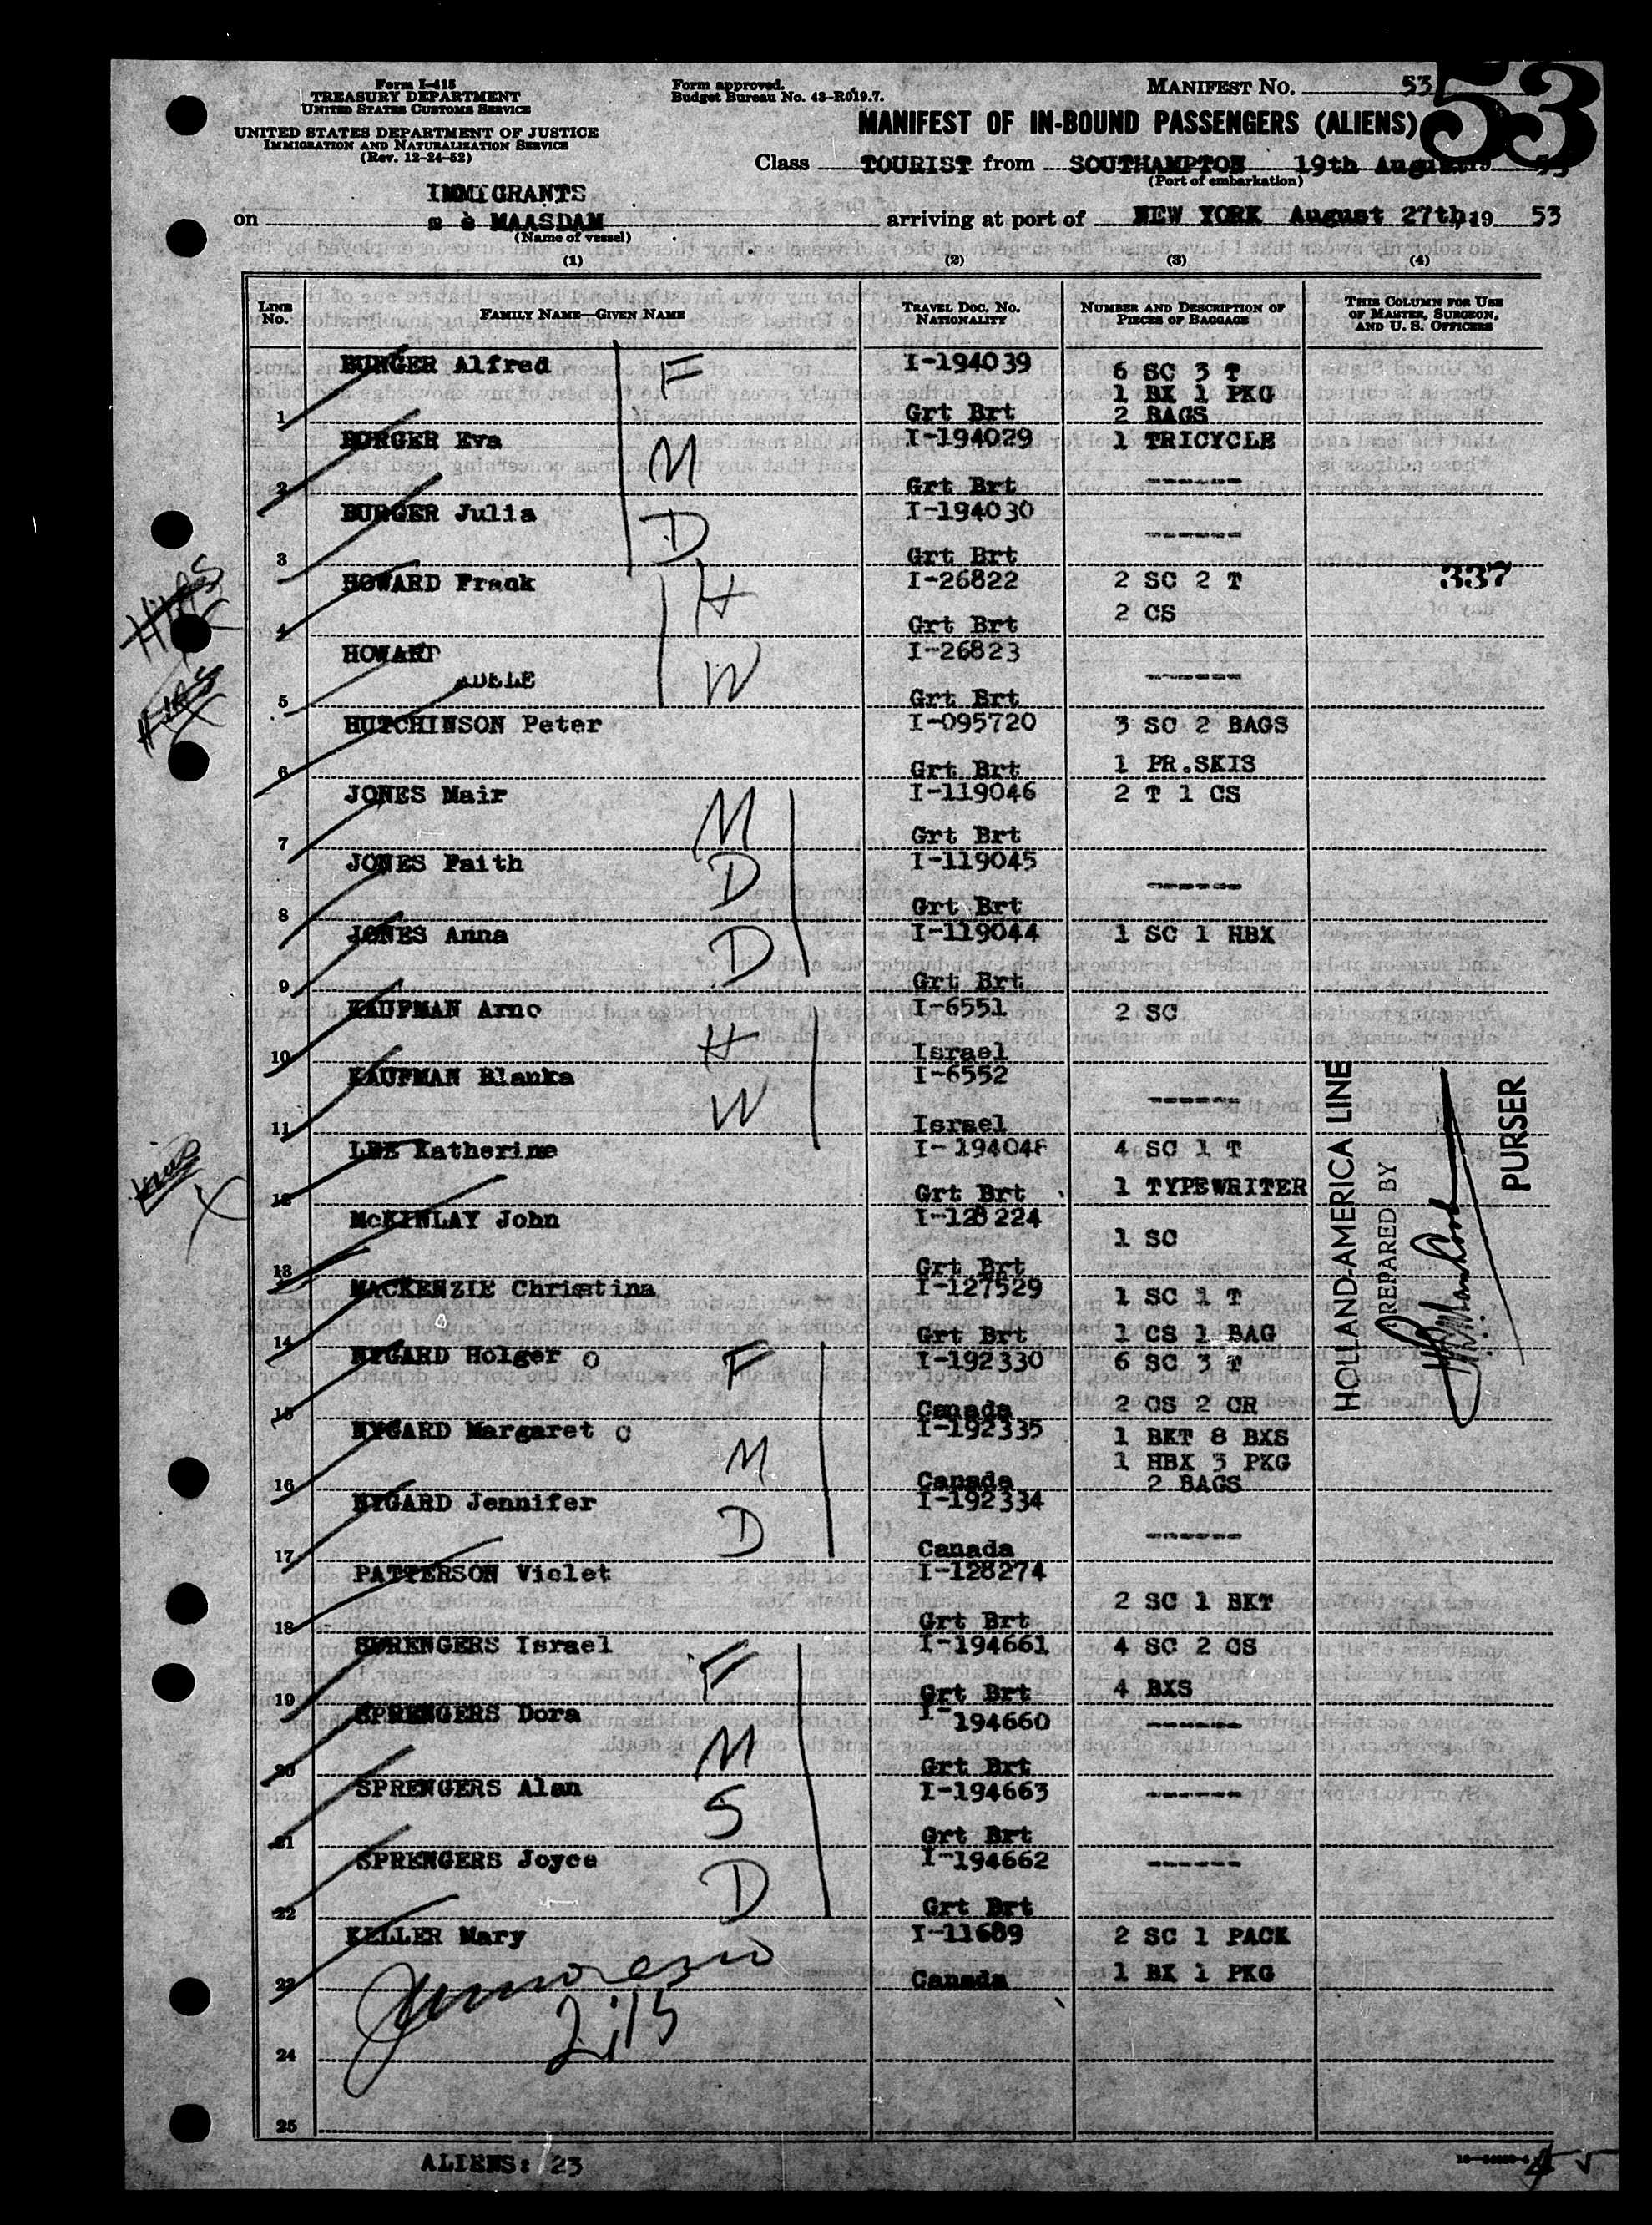 Form I-415
TREASURY DEPARTMENT
UNITED STATES CUSTOMS SERVICE
UNITED STATES DEPARTMENT OF JUSTICE
IMMIGRATION AND NATURALIZATION SERVICE
(Rev. 12-24-52)
Form approved.
Budget Bureau No. 43-R019.7.
MANIFEST NO. 53
53
MANIFEST OF IN-BOUND PASSENGERS (ALIENS)
Class TOURIST from SOUTHAMPTON 19th August 19 53
(Port of embarkation)
IMMIGRANTS
on s s MAASDAM arriving at port of NEW YORK August 27th, 19 53
(Name of vessel)
(1) (2) (3) (4)
LINE NO. FAMILY NAME—GIVEN NAME TRAVEL DOC. NO. NATIONALITY NUMBER AND DESCRIPTION OF PIECES OF BAGGAGE THIS COLUMN FOR USE OF MASTER, SURGEON, AND U. S. OFFICERS
BURGER Alfred F I-194039 6 SC 3 T
1 BX 1 PKG
1 Grt Brt 2 BAGS
BURGER Eva M I-194029 1 TRICYCLE
2 Grt Brt ------
BURGER Julia D I-194030 ------
3 Grt Brt
HOWARD Frank H I-26822 2 SC 2 T 337
4 Grt Brt 2 CS
HIAS
HOWARD I-26823
ADELE W ------
5 Grt Brt
HIAS
HUTCHINSON Peter I-095720 3 SC 2 BAGS
6 Grt Brt 1 PR.SKIS
JONES Mair M I-119046 2 T 1 CS
7 Grt Brt
JONES Faith D I-119045 ------
8 Grt Brt
JONES Anna D I-119044 1 SC 1 HBX
9 Grt Brt
KAUFMAN Arno H I-6551 2 SC
10 Israel
KAUFMAN Blanka W I-6552 ------
11 Israel
LEE Katherine I-194048 4 SC 1 T
12 Grt Brt 1 TYPEWRITER
McKINLAY John I-128224 1 SC
13 Grt Brt
MACKENZIE Christina I-127529 1 SC 1 T
14 Grt Brt 1 CS 1 BAG
NYGARD Holger O F I-192330 6 SC 3 T
15 Canada 2 CS 2 CR
NYGARD Margaret O M I-192335 1 BKT 8 BXS
1 HBX 3 PKG
16 Canada 2 BAGS
NYGARD Jennifer D I-192334 ------
17 Canada
PATTERSON Violet I-128274 2 SC 1 BKT
18 Grt Brt
SPRENGERS Israel F I-194661 4 SC 2 CS
19 Grt Brt 4 BXS
SPRENGERS Dora M I-194660 ------
20 Grt Brt
SPRENGERS Alan S I-194663 ------
21 Grt Brt
SPRENGERS Joyce D I-194662 ------
22 Grt Brt
KELLER Mary I-11689 2 SC 1 PACK
23 Canada 1 BX 1 PKG
24
25
HOLLAND-AMERICA LINE
PREPARED BY
PURSER
ALIENS: 23